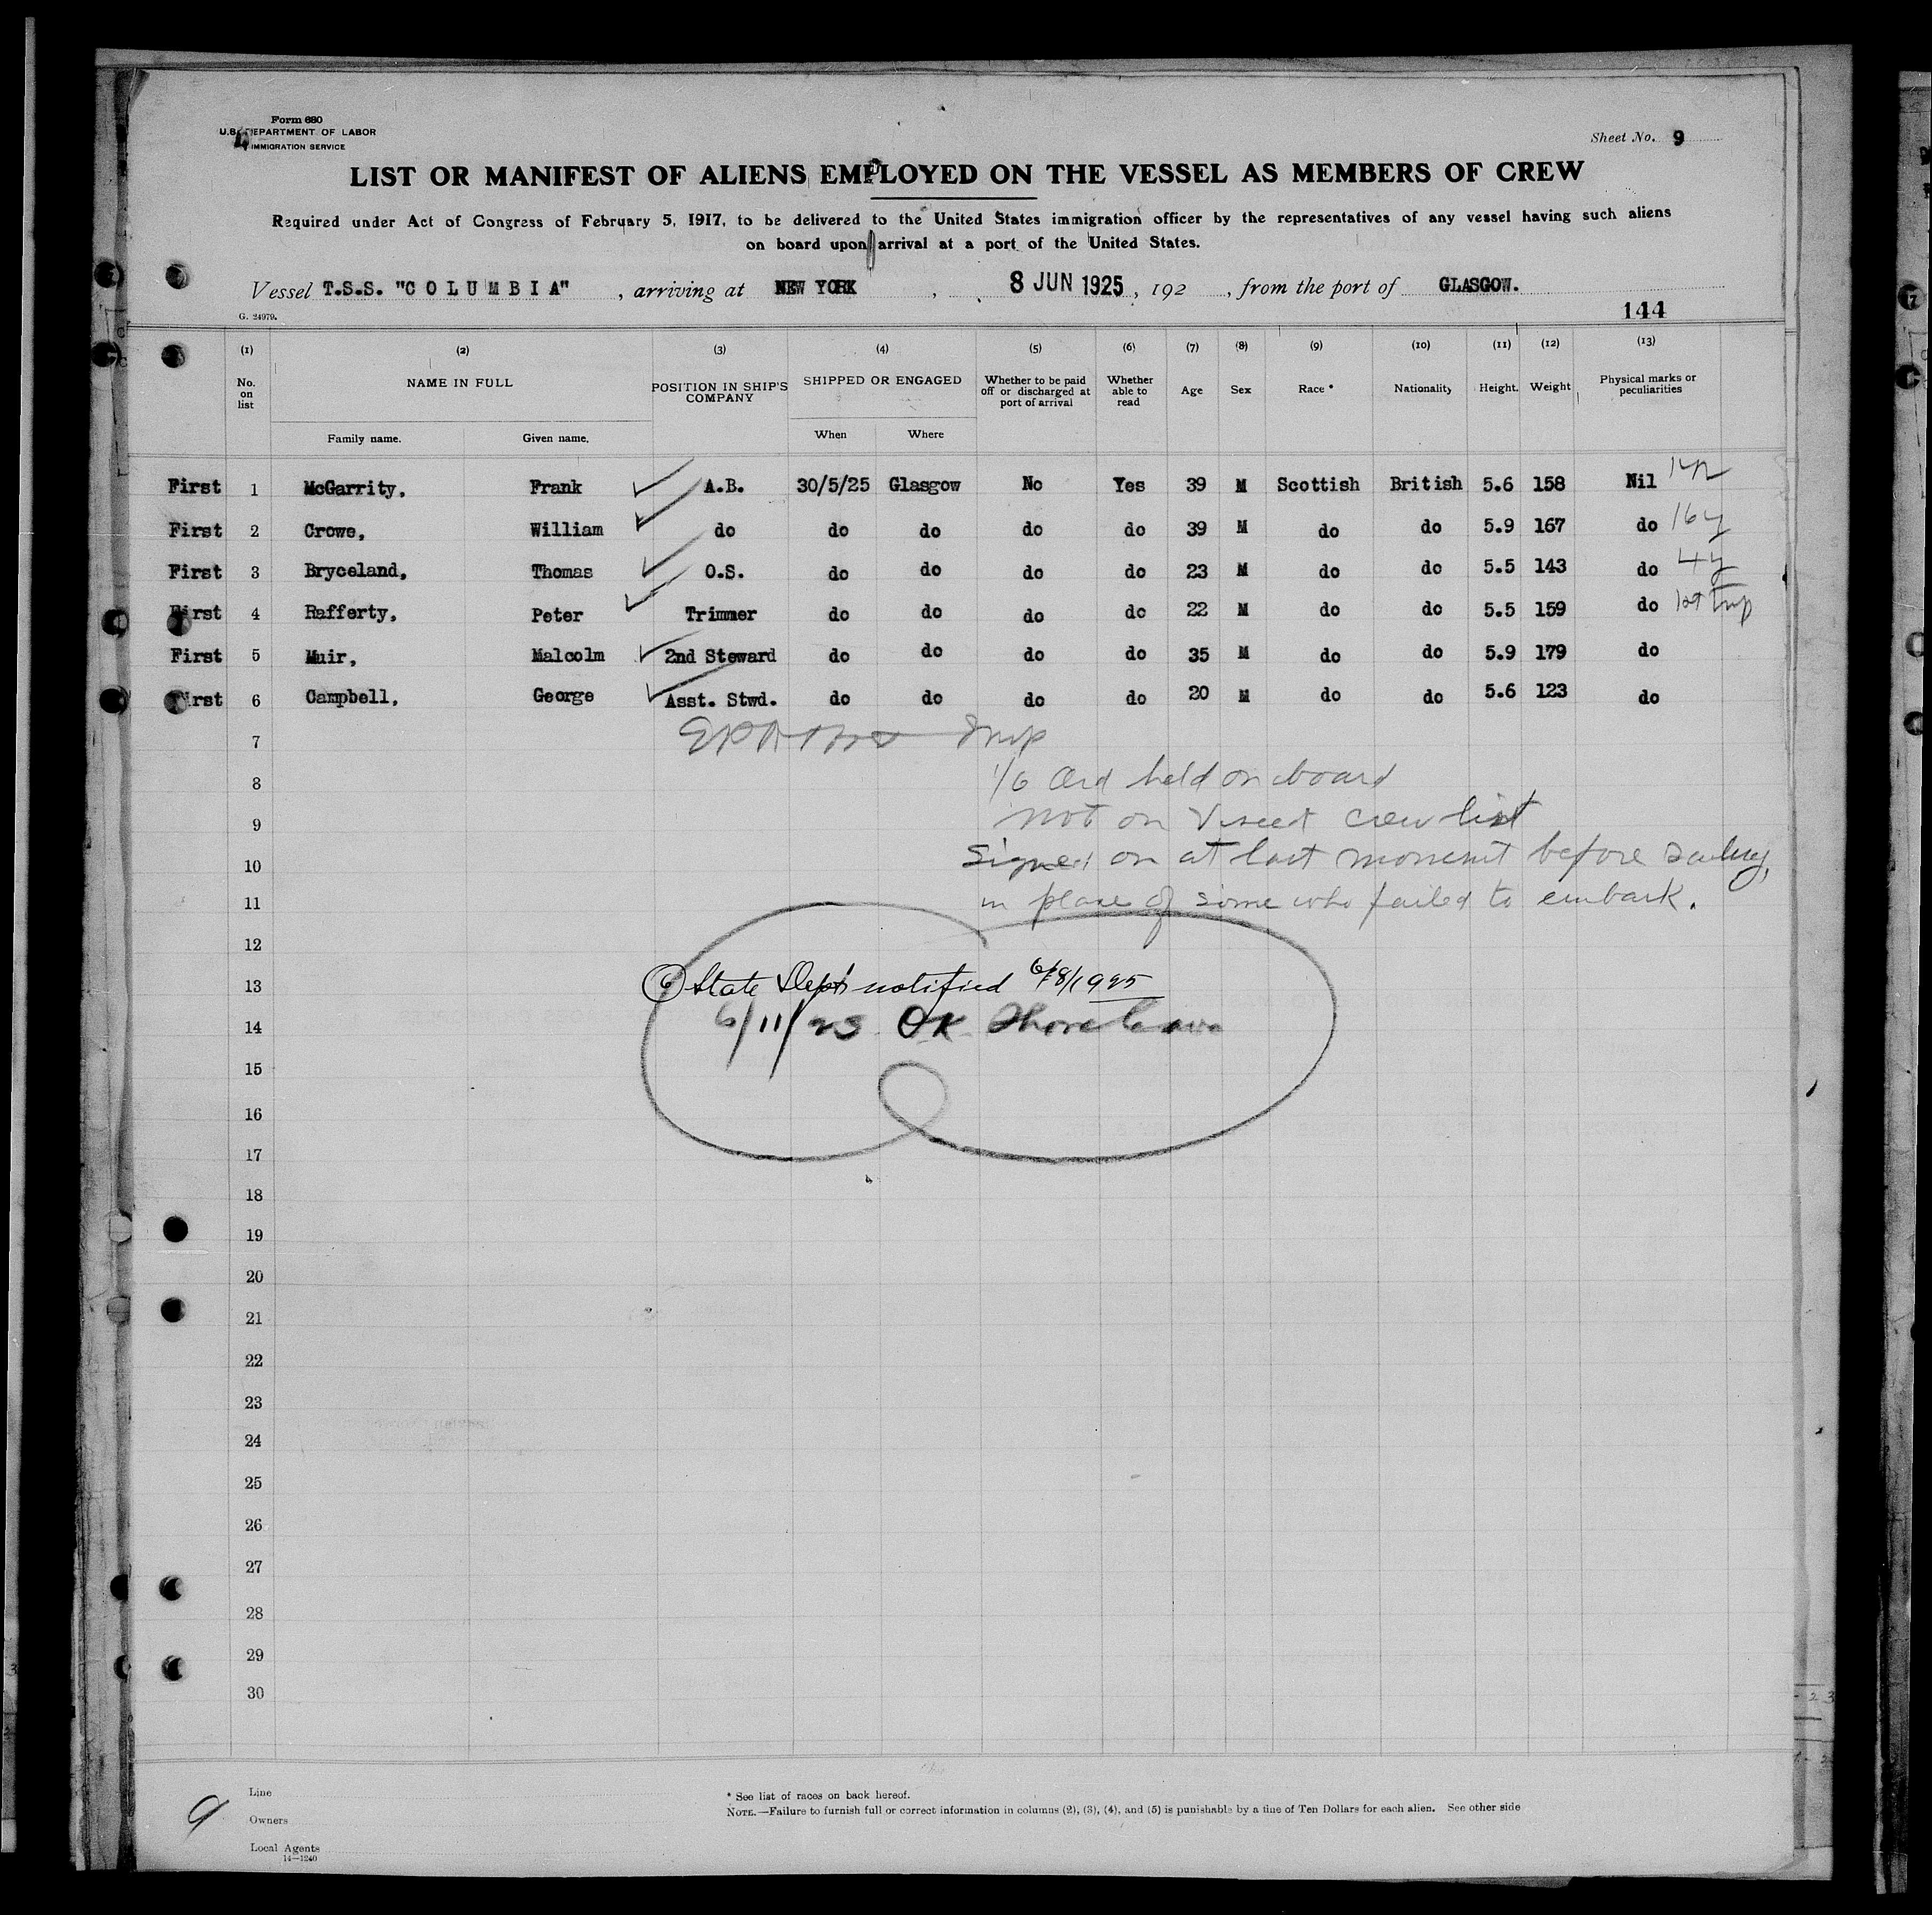 Form 680
U.S. DEPARTMENT OF LABOR
IMMIGRATION SERVICE
Sheet No. 9
LIST OR MANIFEST OF ALIENS EMPLOYED ON THE VESSEL AS MEMBERS OF CREW
Required under Act of Congress of February 5, 1917, to be delivered to the United States immigration officer by the representatives of any vessel having such aliens
on board upon arrival at a port of the United States.
Vessel T.S.S. "COLUMBIA", arriving at NEW YORK, 8 JUN 1925, 192 , from the port of GLASGOW.
G. 24979.
144
(1) (2) (3) (4) (5) (6) (7) (8) (9) (10) (11) (12) (13)
No. on list NAME IN FULL POSITION IN SHIP'S COMPANY SHIPPED OR ENGAGED Whether to be paid off or discharged at port of arrival Whether able to read Age Sex Race * Nationality Height. Weight Physical marks or peculiarities
Family name. Given name. When Where
First 1 McGarrity, Frank A.B. 30/5/25 Glasgow No Yes 39 M Scottish British 5.6 158 Nil
First 2 Crowe, William do do do do do 39 M do do 5.9 167 do 16y
First 3 Bryceland, Thomas O.S. do do do do 23 M do do 5.5 143 do 4y
First 4 Rafferty, Peter Trimmer do do do do 22 M do do 5.5 159 do 1st Trip
First 5 Muir, Malcolm 2nd Steward do do do do 35 M do do 5.9 179 do
First 6 Campbell, George Asst. Stwd. do do do do 20 M do do 5.6 123 do
7 Insp
8 1/6 Ord held on board
9 not on Viseed crew list
10 Signed on at last moment before sailing,
11 in place of some who failed to embark.
12
13 6 State Dept notified 6/8/1925
14 6/11/25 OK Shore leave
15
16
17
18
19
20
21
22
23
24
25
26
27
28
29
30
9
Line
Owners
Local Agents
14—1240
* See list of races on back hereof.
NOTE.—Failure to furnish full or correct information in columns (2), (3), (4), and (5) is punishable by a fine of Ten Dollars for each alien. See other side